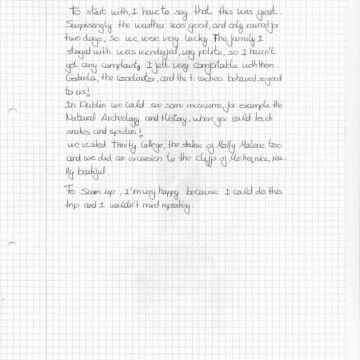 To start with, I have to say that this was great.
Surprisingly the weather was good, and only rained for
two days, so we were very lucky. The family I
stayed with was wonderful, very polite, so I haven't
got any complaints. I felt very comfortable with them.
Gabriela, the coordinator, and the teachers behaved so good
to us!
In Dublin we could see some museums, for example the
Natural Archeology and History, where you could touch
snakes and spiders!
we visited Trinity College, the statue of Molly Malone too
and we did an excursion to the Cliffs of Moher, nice, rea-
lly beautiful.
To sum up, I'm very happy because I could do this
trip and I wouldn't mind repeating.